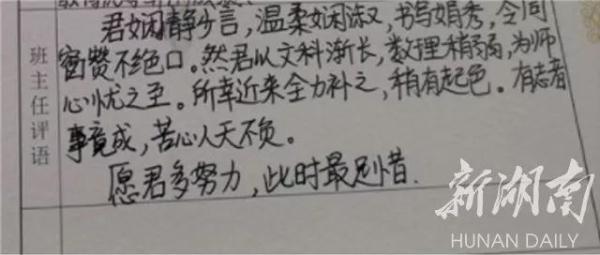 君娴静少言，温柔娴淑，书写娟秀，令同
窗赞不绝口。然君以文科渐长，数理稍弱，为师
心忧之至。所幸近来全力补之，稍有起色。有志者
事竟成，苦心人天不负。
愿君多努力，此时最足惜.
班主任评语
新湖南
HUNAN DAILY